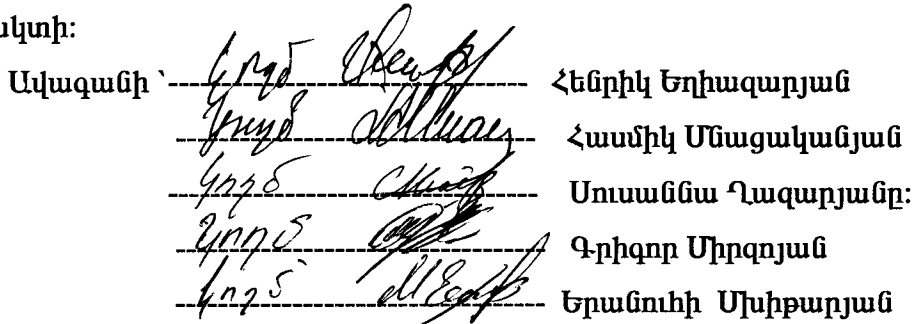 ակտի:
Ավագանի ՝ կողմ Հենրիկ Եղիազարյան
կողմ Հասմիկ Մնացականյան
կողմ Սուսաննա Ղազարյանը:
կողմ Գրիգոր Միրզոյան
կողմ Երանուհի Մխիթարյան